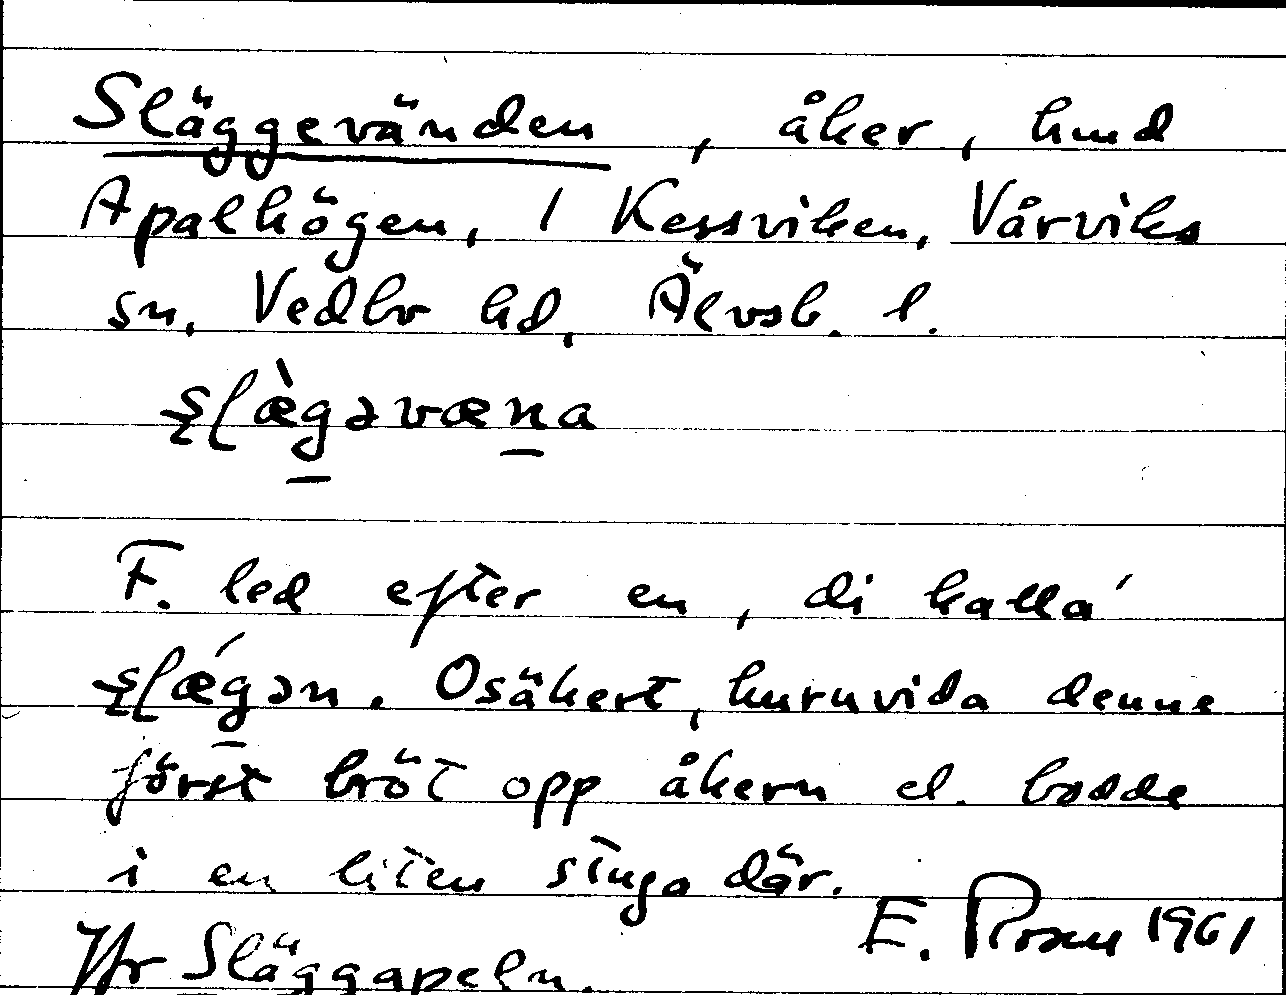 Släggevänden, åker, hmd
Apalhögen, 1 Kessviken, Vårviks
sn, Vedbo hd, Älvsb. l.
F. led efter en, di kalla'
Osäkert, huruvida denne
först bröt opp åkern el. bodde
i en liten stuga där.
E. Rosen 1961
Jfr Släggapeln.